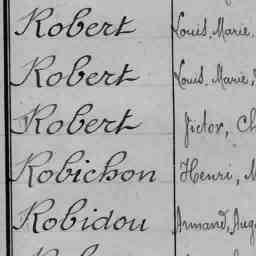 Robert Louis, Marie,
Robert Louis, Marie,
Robert Victor, Ch
Robichon Henri, M
Robidou Armand, Aug